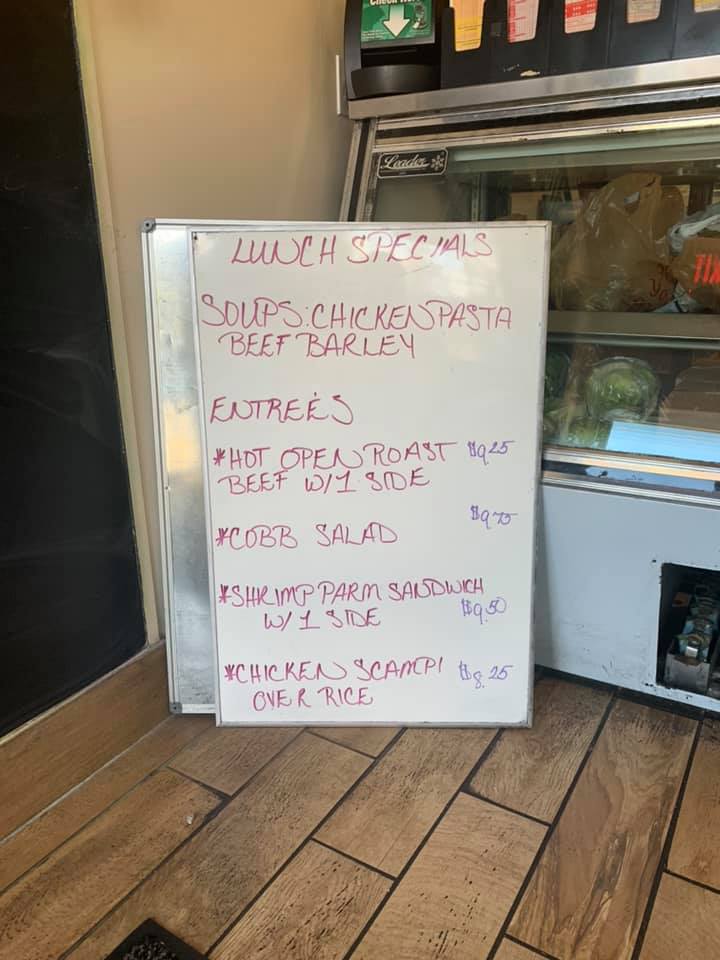 Check Here
Leader
LUNCH SPECIALS
SOUPS: CHICKEN PASTA
BEEF BARLEY
ENTREÉS
*HOT OPEN ROAST $9.25
BEEF W/1 SIDE
*COBB SALAD $9.75
*SHRIMP PARM SANDWICH
W/ 1 SIDE $9.50
*CHICKEN SCAMPI $8.25
OVER RICE